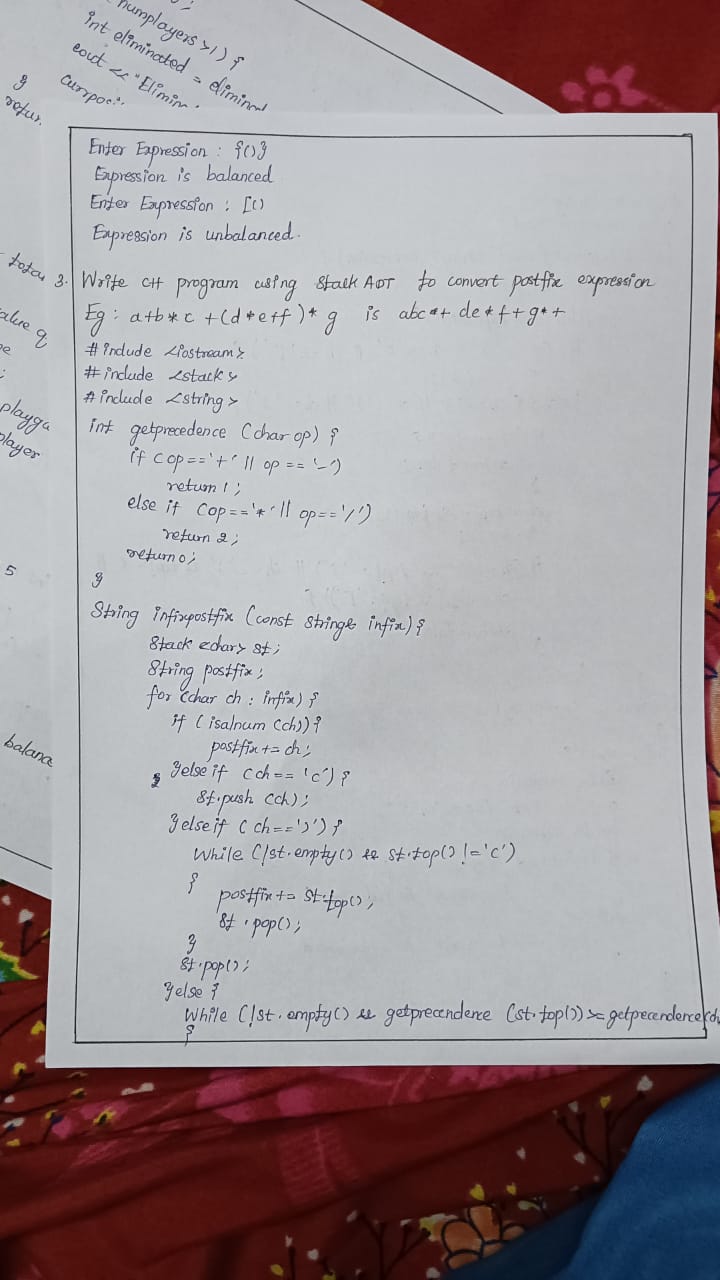 numplayers >1) {
int eliminated = elimin
cout << "Elimin
currpos
}
retur.
total
value
q
playga
player
5
balance
Enter Expression : {()}
Expression is balanced
Enter Expression : [()
Expression is unbalanced.
3. Write C++ program using Stack ADT to convert postfix expression
Eg : a+b*c +(d*e+f)* g is abc*+ de*f+g*+
#include <iostream>
#include <stack>
#include <string>
int getprecedence (char op) {
if (op=='+' || op == '-')
return 1;
else if (op=='*' || op=='/')
return 2;
return 0;
}
String infixpostfix (const string& infix) {
Stack <char> st;
String postfix;
for (char ch : infix) {
if (isalnum (ch)) {
postfix += ch;
} else if (ch == '(') {
st.push (ch);
} else if (ch==')') {
While (!st.empty() && st.top() != '(')
{
postfix += st.top();
st.pop();
}
st.pop();
} else {
While (!st.empty() && getprecendence (st.top()) >= getpecendence(ch
{